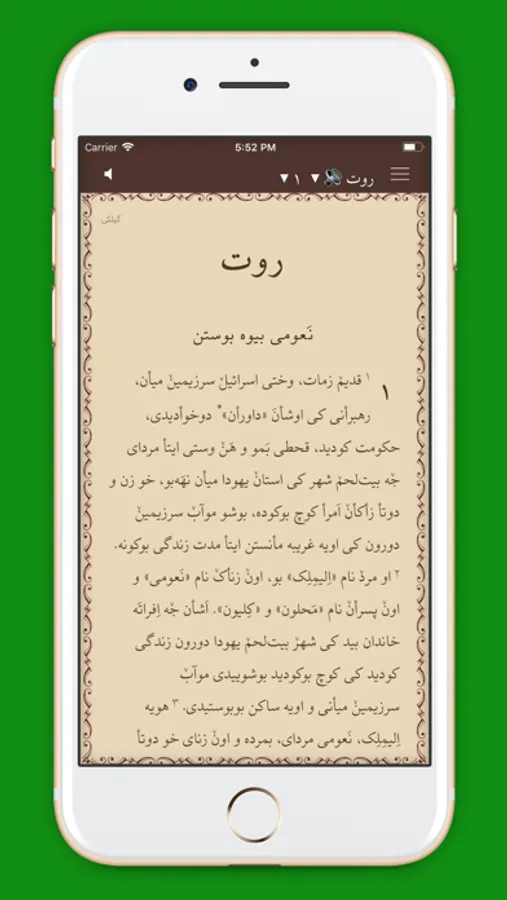 Carrier 5:52 PM
روت ▼ ۱ ▼
گیلکی
روت
نَعومی بیوه بوستن
۱ ۱ قدیمˇ زمات، وختی اسرائیلˇ سرزیمینˇ میأن،
رهبرأنی کی اوشأنَ «داورأن»* دوخوأدیدی،
حکومت کودید، قحطی بَمو و هَنˇ وستی ایتأ مردای
جٚه بیت‌لحمˇ شهر کی استانˇ یهودا میأن نهَه‌بو، خو زن و
دوتأ زأکأنˇ اَمرأ کوچ بوکوده، بوشو موآبˇ سرزیمینˇ
دورون کی اویه غریبه مأنستن ایتأ مدت زندگی بوکونه.
۲ او مردˇ نام «اِلیمِلِک» بو، اونˇ زنأکˇ نام «نَعومی» و
اونˇ پسرأنˇ نام «مَحلون» و «کِلیون». اَشأن جٚه اِفراتَه
خاندان بید کی شهرˇ بیت‌لحمˇ یهودا دورون زندگی
کودید کی کوچ بوکودید بوشوییدی موآبˇ
سرزیمینˇ میأنی و اویه ساکن بوبوستیدی. ۳ هویه
اِلیمِلِک، نَعومی مردای، بمرده و اونˇ زنای خو دوتأ